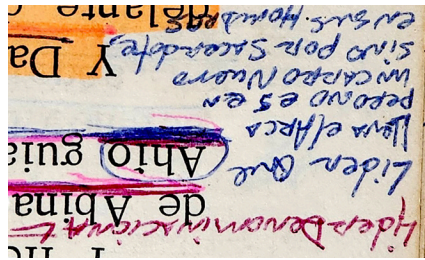 Lider Denominaciona L
de Abina
Lider que
lleva el Arca
pero no es en
un carro Nuevo
sino por Sacerdote,
en sus Hombros
Ahio guia
Y Da
delante